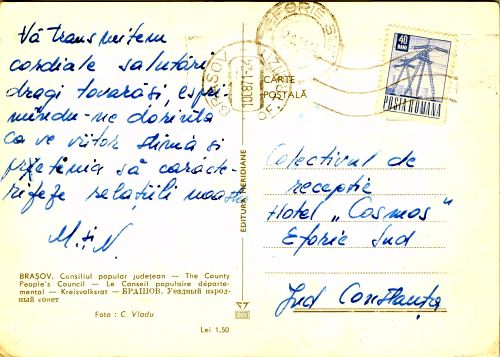 Vă transmitem
cordiale salutări
dragi tovarăși, espri-
mîndu-ne dorința
ca viitor stima și
prietenia să caracte-
rizeze relațiile noastre
M. și N.
BRAȘOV. Consiliul popular județean — The County
People's Council — Le Conseil populaire départe-
mental — Kreisvolksrat — БРАШОВ. Уездный народ-
ный совет
Foto : C. Vladu
Lei 1,50
EDITURA MERIDIANE
BRAȘOV
EFORIE S
CARTE
POȘTALĂ
40
BANI
POSTA ROMANA
Colectivul de
recepție
Hotel „Cosmos"
Eforie Sud
Jud Constanța